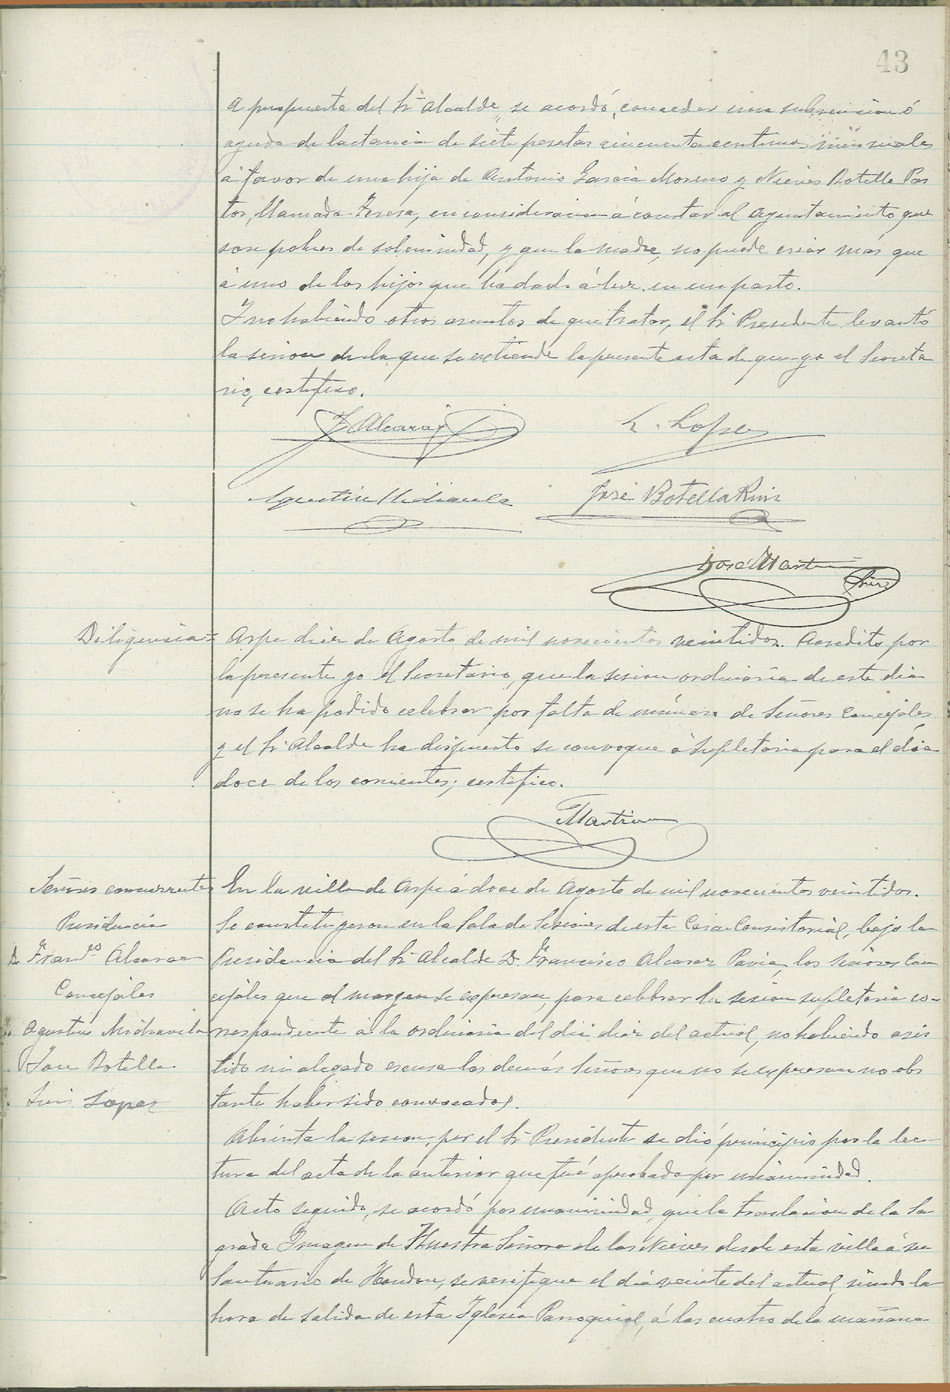 43
A propuesta del Sr Alcalde, se acordó, conceder una subvencion ó
ayuda de lactancia de siete pesetas cincuenta centimos mensuales
á favor de una hija de Antonio Garcia Moreno y Nieves Botella Pas-
tor, llamada Teresa, en consideracion á constar al Ayuntamiento que
son pobres de solemnidad, y que la madre, no puede criar mas que
á uno de los hijos que ha dado á luz en un parto.
Y no habiendo otros asuntos de que tratar, el Sr Presidente levantó
la sesion de la que se extiende la presente acta de que yo el Secreta
rio, certifico.
F Alcaraz
L. Lopez
Agustin Miravella
José Botella Ruiz
José Martin
Diligencia = Aspe diez de Agosto de mil novecientos veintidos. Acredito por
la presente yo el Secretario, que la sesion ordinaria de este dia
no se ha podido celebrar por falta de número de Señores Concejales
y el Sr Alcalde ha dispuesto se convoque á supletoria para el dia
doce de los corrientes; certifico.
Martin
Señores concurrentes
Presidencia
D. Franco Alcaraz
Concejales
Agustin
Jose Botella
Luis Lopez
En la villa de Aspe á doce de Agosto de mil novecientos veintidos.
Se constituyeron en la Sala de Sesiones de esta Casa Consistorial, bajo la
Presidencia del Sr Alcalde D. Francisco Alcaraz Pavia, los señores Con
cejales que al margen se expresan, para celebrar la sesion supletoria co-
rrespondiente á la ordinaria del dia diez del actual, no habiendo asis
tido ni alegado escusa los demás Señores que no se expresan no obs
tante haber sido convocados.
Abierta la sesion, por el Sr Presidente se dió principio por la lec-
tura del acta de la anterior que fué aprobada por unanimidad.
Acto seguido, se acordó por unanimidad, que la traslacion de la Sa
grada Imagen de Nuestra Señora de las Nieves desde esta villa á su
Santuario de Hondon, se verifique el dia veinte del actual siendo la
hora de salida de esta Iglesia Parroquial, á las cuatro de la mañana